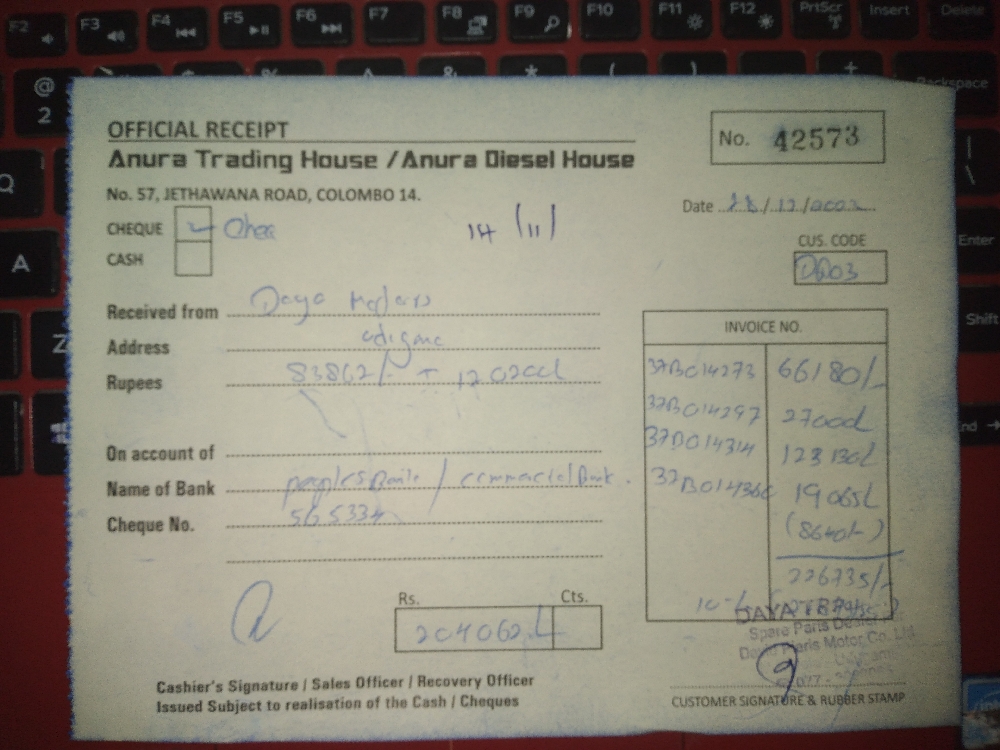 OFFICIAL RECEIPT
No. 42573
Anura Trading House /Anura Diesel House
No. 57, JETHAWANA ROAD, COLOMBO 14.
Date
CHEQUE
14/11/
CUS. CODE
CASH
Received from Daya Motors
INVOICE NO.
Address
Rupees 83862/- + 120200/-
37B014273 66180/-
37B014297 27000/-
37B014314 123130/-
On account of
Name of Bank peoples Bank / commercial Bank.
19065/-
Cheque No. 565334
(8640/-)
226735/-
Rs. Cts.
10-/-
204062/-
DAYA
Spare Parts Dealer
David Pieris Motor Co. Ltd.
077 -
Cashier's Signature / Sales Officer / Recovery Officer
CUSTOMER SIGNATURE & RUBBER STAMP
Issued Subject to realisation of the Cash / Cheques
F2 F3 F4 F5 F6 F7 F8 F9 F10 F11 F12 PrtScr Insert Delete
@ 2
Backspace
Q
A
Enter
Z
Shift